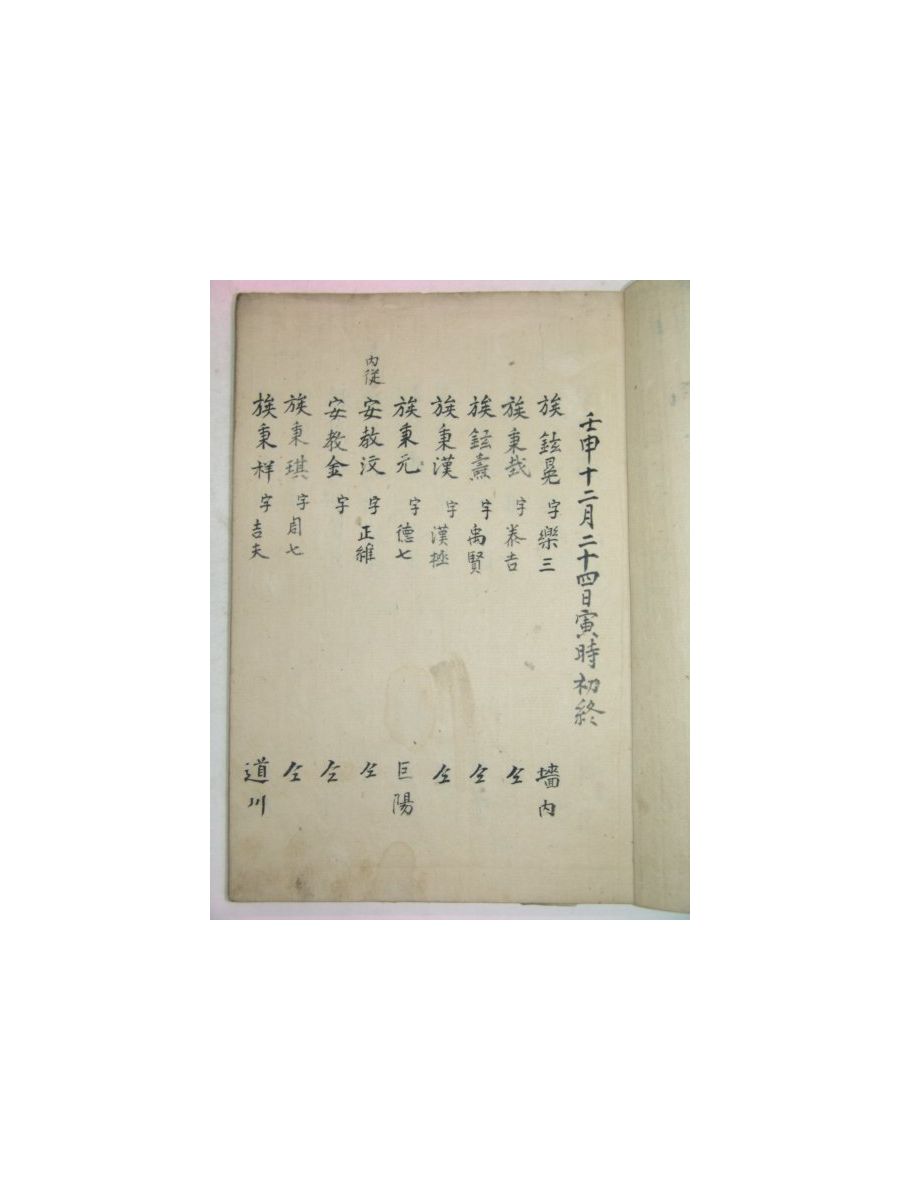 壬申十二月二十四日寅時初終
族鉉晃 字樂三 墻內
族秉哉 字泰吉 仝
族鉉燾 字禹賢 仝
族秉漢 字漢極 仝
族秉元 字德七 巨陽
內從 安教汶 字正維 仝
安教金 字 仝
族秉琪 字周七 仝
族秉祥 字吉夫 道川